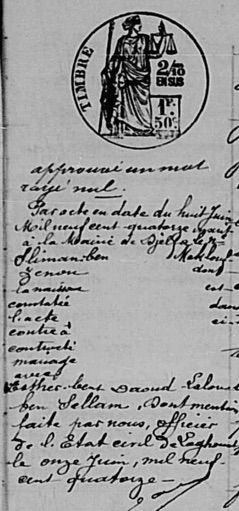 TIMBRE
2/10
EN SUS
1F.
50c
approuvé un mot
rayé nul.
Par acte en date du huit Juin
Mil neuf cent quatorze,
à la Mairie de Djelfa, le Nᵉ
Sliman ben
Zenou dont
la naissance est
constatée dans
l'acte ci-
contre à
contracté
mariage
avec
Esther bent Daoud Lalou
ben Sellam, Dont mention
faite par nous, officier
de l'Etat civil de Laghouat
le onze Juin, mil neuf
cent quatorze